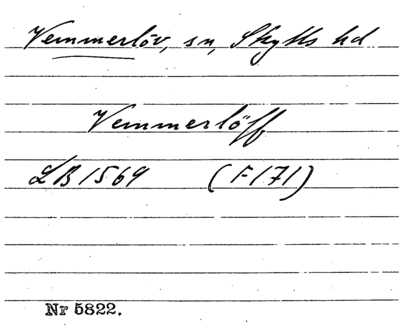 Vemmerlöv, sn, Skytts hd
Vemmerlöff
LB 1569 (F171)
Nr 5822.